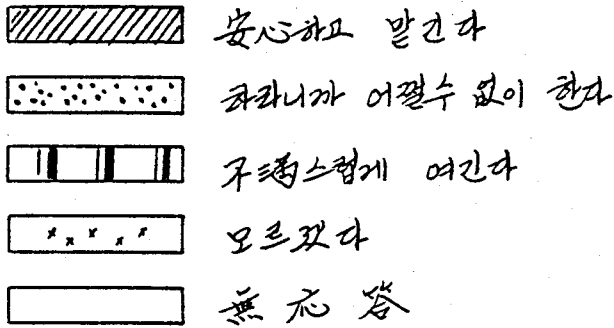 安心하고 맡긴다
하라니까 어쩔수 없이 한다
不満스럽게 여긴다
모르겠다
無応答